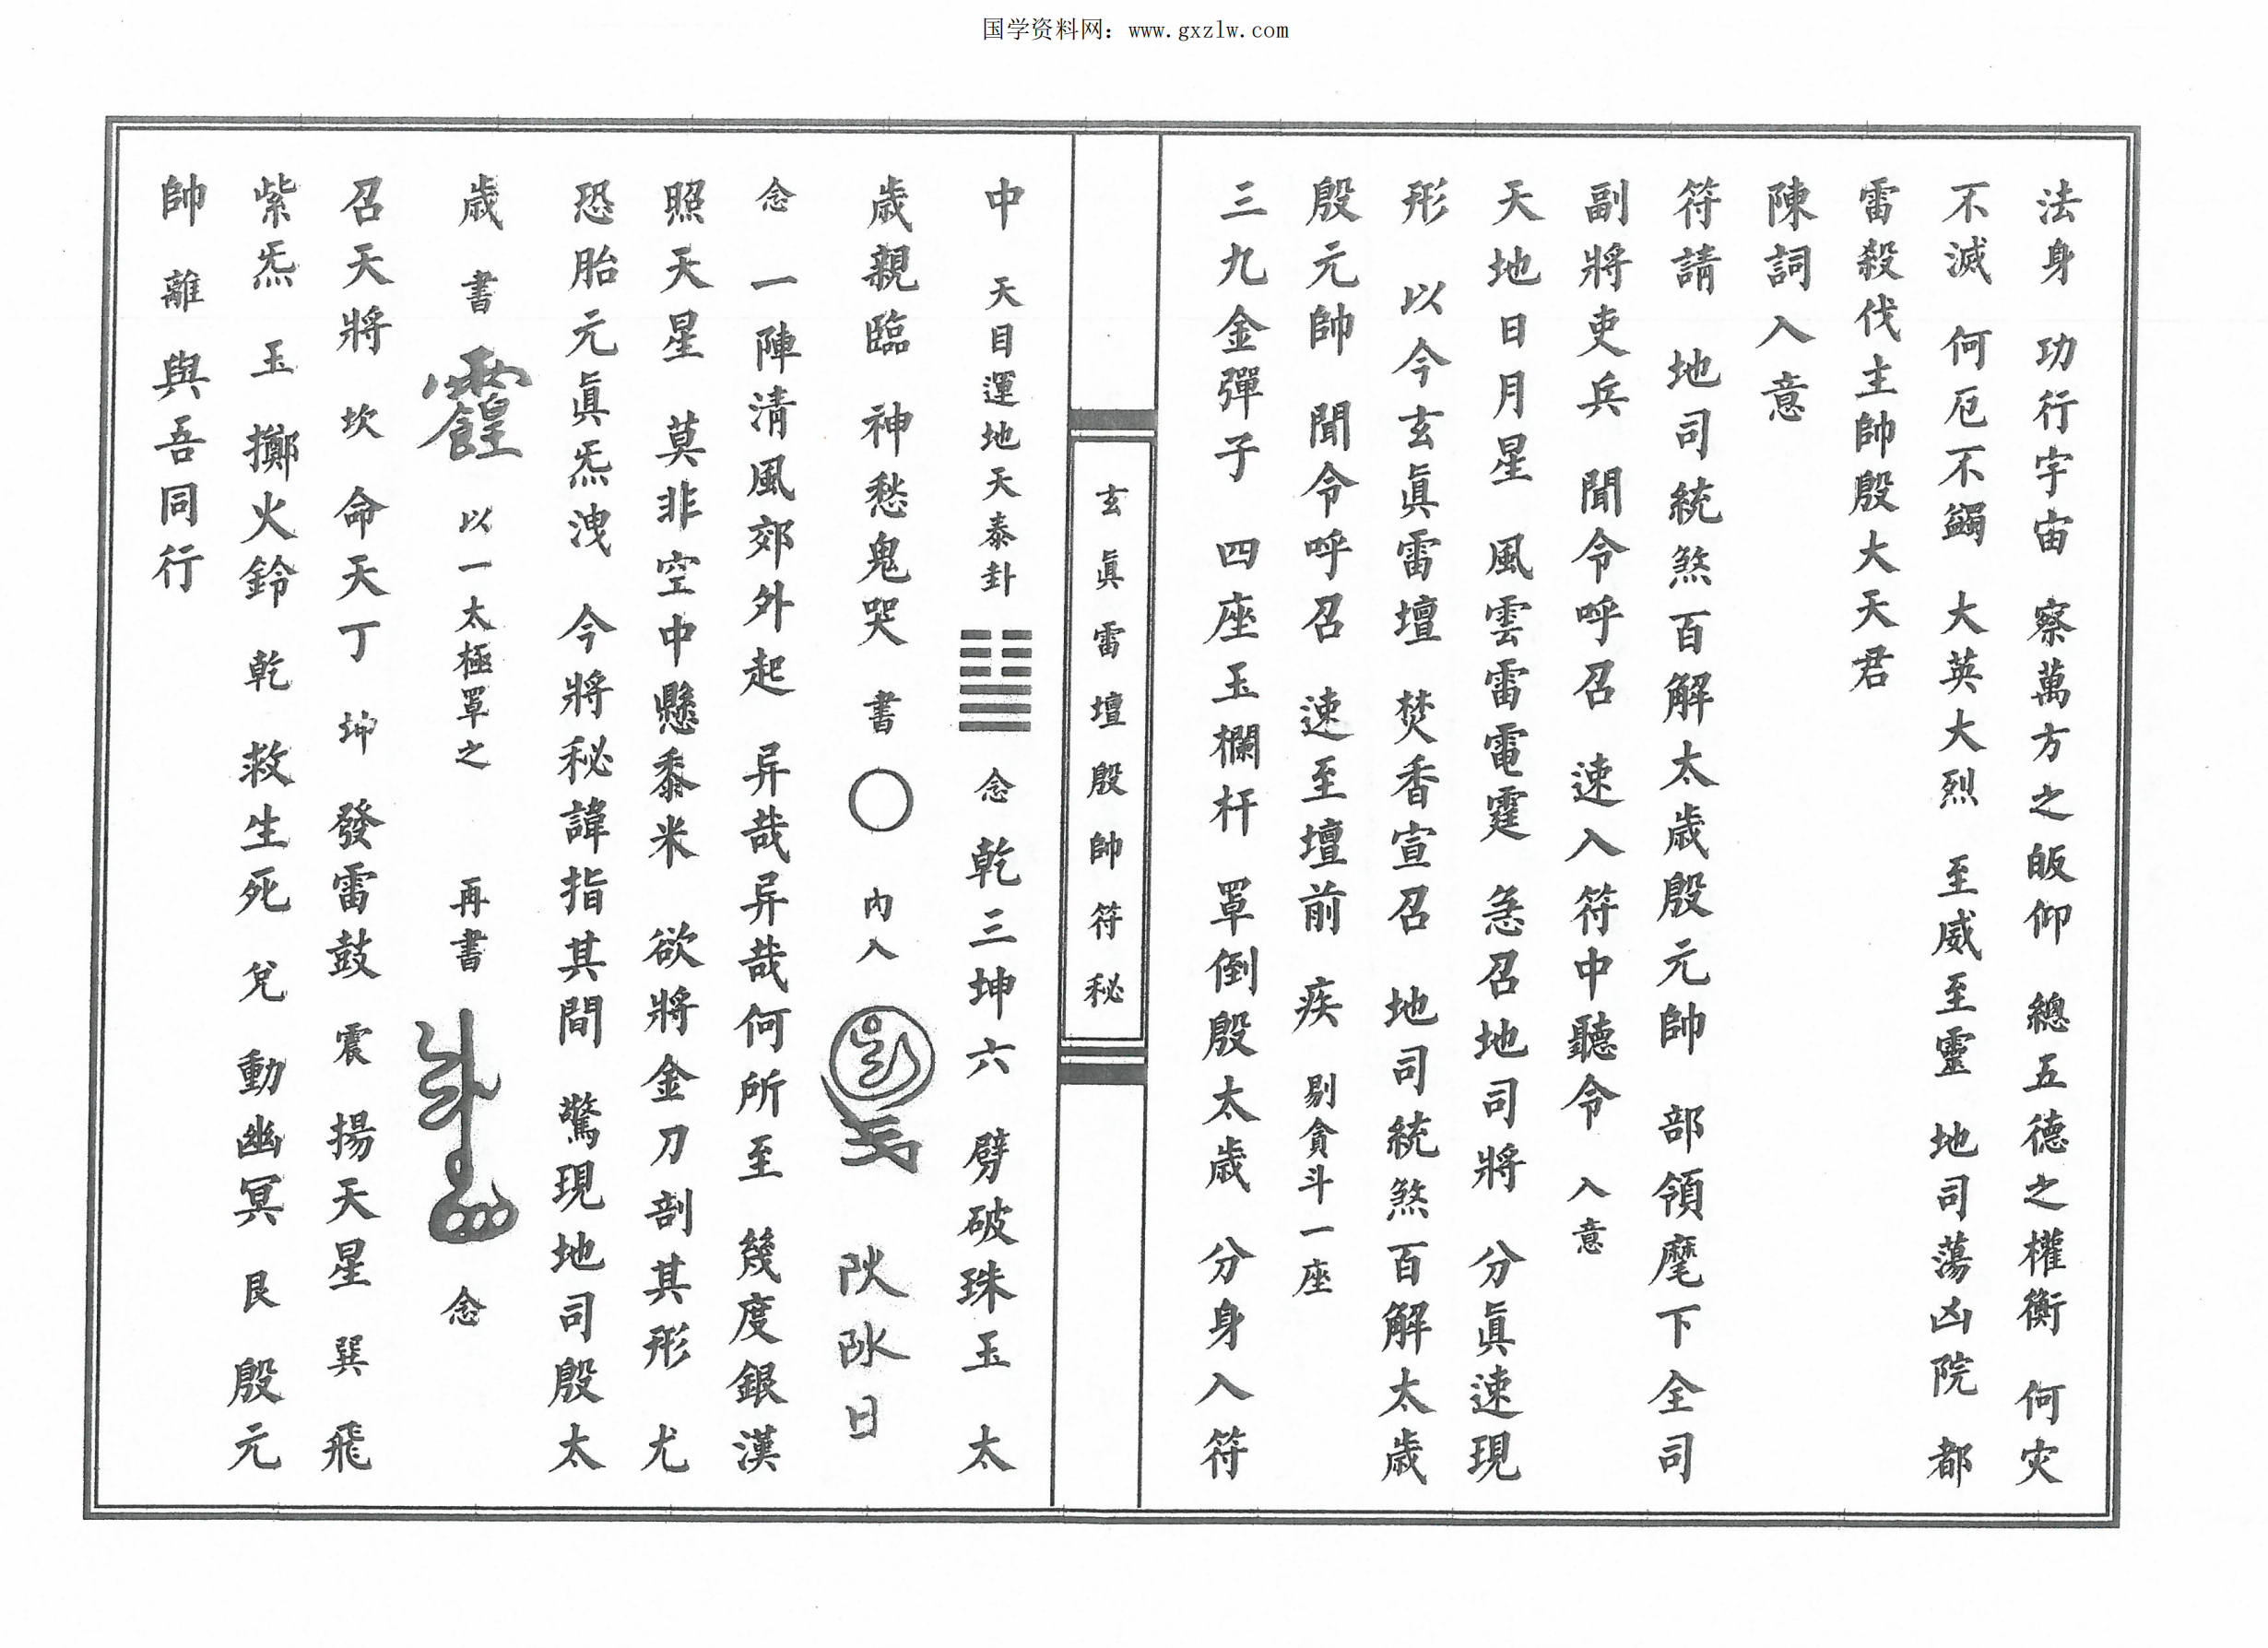 国学资料网：www.gxzlw.com
法身　功行宇宙　察萬方之皈仰　總五德之權衡　何灾
不滅　何厄不蠲　大英大烈　至威至靈　地司蕩凶院　都
雷殺伐主帥殷大天君
陳詞入意
符請　地司統煞百解太歲殷元帥　部領麾下全司
副將吏兵　聞令呼召　速入符中聽令　入意
天地日月星　風雲雷電霆　急召地司將　分眞速現
形　以今玄眞雷壇　焚香宣召　地司統煞百解太歲
殷元帥　聞令呼召　速至壇前　疾　剔貪斗一座
三九金彈子　四座玉欄杆　罩倒殷太歲　分身入符
玄眞雷壇殷帥符秘
中　天目運地天泰卦　䷊　念　乾三坤六　劈破珠玉　太
歲親臨　神愁鬼哭　書　〇　内入　日
念　一陣清風郊外起　异哉异哉何所至　幾度銀漢
照天星　莫非空中懸黍米　欲將金刀剖其形　尤
恐胎元眞炁洩　今將秘諱指其間　驚現地司殷太
歲　書　以一太極罩之　再書　念
召天將　坎　命天丁　坤　發雷鼓　震　揚天星　巽　飛
紫炁　玉　擲火鈴　乾　救生死　兌　動幽冥　艮　殷元
帥　離　與吾同行